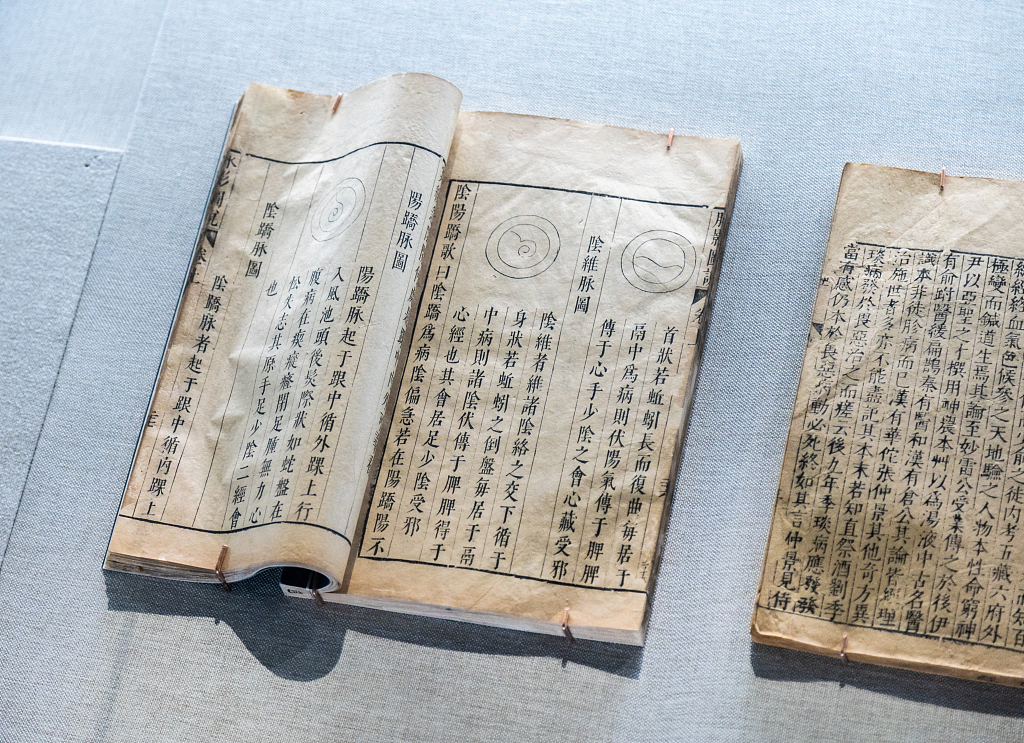 首狀若蚯蚓長而復亜每居于
鬲中爲病則伏陽氣傳于脾脾
傳于心手少陰之會心藏受邪
陰維脉圖
陰維者維諸陰絡之交下循于
身狀若蚯蚓之倒盤每居于鬲
中病則諸陰伏傳于脾脾得于
心經也其會居足少陰受邪
陰陽蹻歌曰陰蹻爲病陰偏急若在陽蹻陽不
陽蹻脉圖
陽蹻脉起于跟中循外踝上行
入風池頭後長際狀如蛇盤在
腹病在瘈瘲癃閉足腫無力心
松失志其原手足少陰二經會
也
陰蹻脉圖
陰蹻脉者起于跟中循內踝上
走
之徒内考五藏六府外
經絡血氣色候參之天地驗之人物本性命窮神
極變而鍼道生焉其論至妙雷公受業傳之於後伊
尹以亞聖之才撰用神農本艸以爲湯液中古名醫
有俞跗醫緩扁鵲秦有醫和漢有倉公其論皆經理
識本非徒胗病而已漢有華佗張仲景其他奇方異
治施世者多亦不能盡記其本末若知直祭酒劉季
琰病發於畏惡治之而瘥云後九年季琰病應發發
當有感仍本於畏惡病動必死終如其言仲景見侍